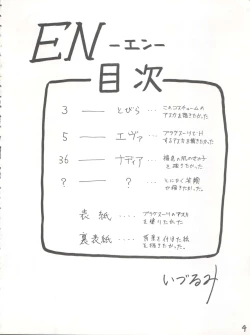 EN -エン-
目次
3 ── とびら … このコスチュームの
アスカを描きたかった
5 ── エヴァ … プラグスーツでH
するアスカを描きたかった
36 ── ナディア … 褐色の肌の女の子
を描きたかった。
? ── ? … とにかく
が描きたかった。
表紙 … プラグスーツのアスカ
を塗りたかった
裏表紙 … 背景を付けた絵
を描きたかった。
いづるみ
4